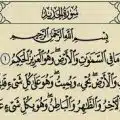 سُورَةُ الحَدِيد
بِسْمِ اللَّهِ الرَّحْمَنِ الرَّحِيمِ
مَا فِي السَّمَوَتِ وَالْأَرْضِ وَهُوَ الْعَزِيزُ الْحَكِيمُ ١
وَالْأَرْضِ يُحْيِ وَيُمِيتُ وَهُوَ عَلَى كُلِّ شَيْءٍ
وَالْآخِرُ وَالظَّهِرُ وَالْبَاطِنُ وَهُوَ بِكُلِّ شَيْءٍ